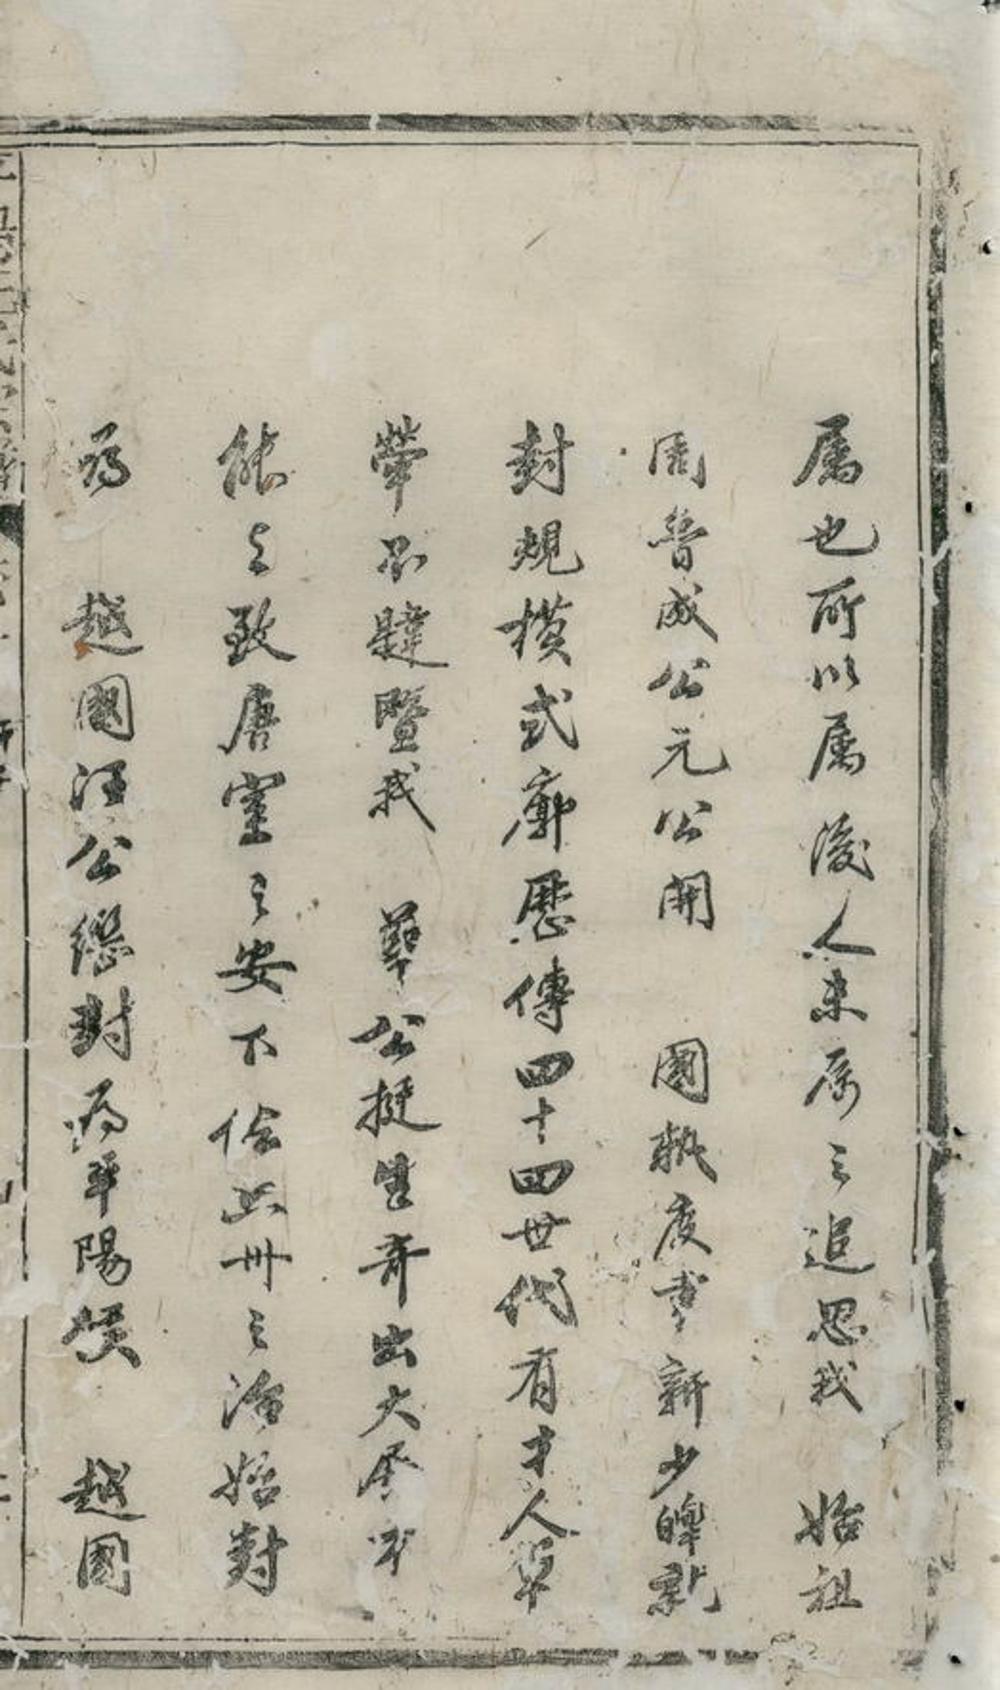 属也所以属後人未属之追思我 始祖
周魯成公元公開 國執度重新少皞就
封規模式廓歷傳四十四世代有才人
不韙暨我 華公挺生奇出大展
能之致唐室之安下俭六州之治始封
為 越國汪公继封為平陽侯 越國